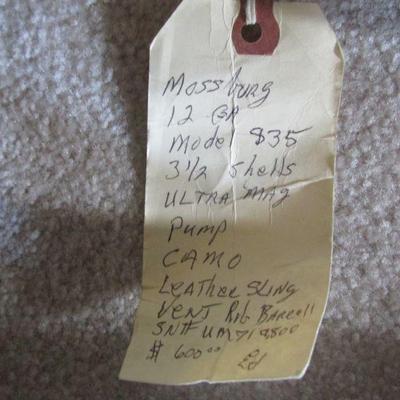 Mossburg
12 GA
Model 835
3 1/2 Shells
ULTRA MAG
Pump
CAMO
Leather Sling
Vent Rib Barrell
SN# UM719800
$ 600.00
Ed